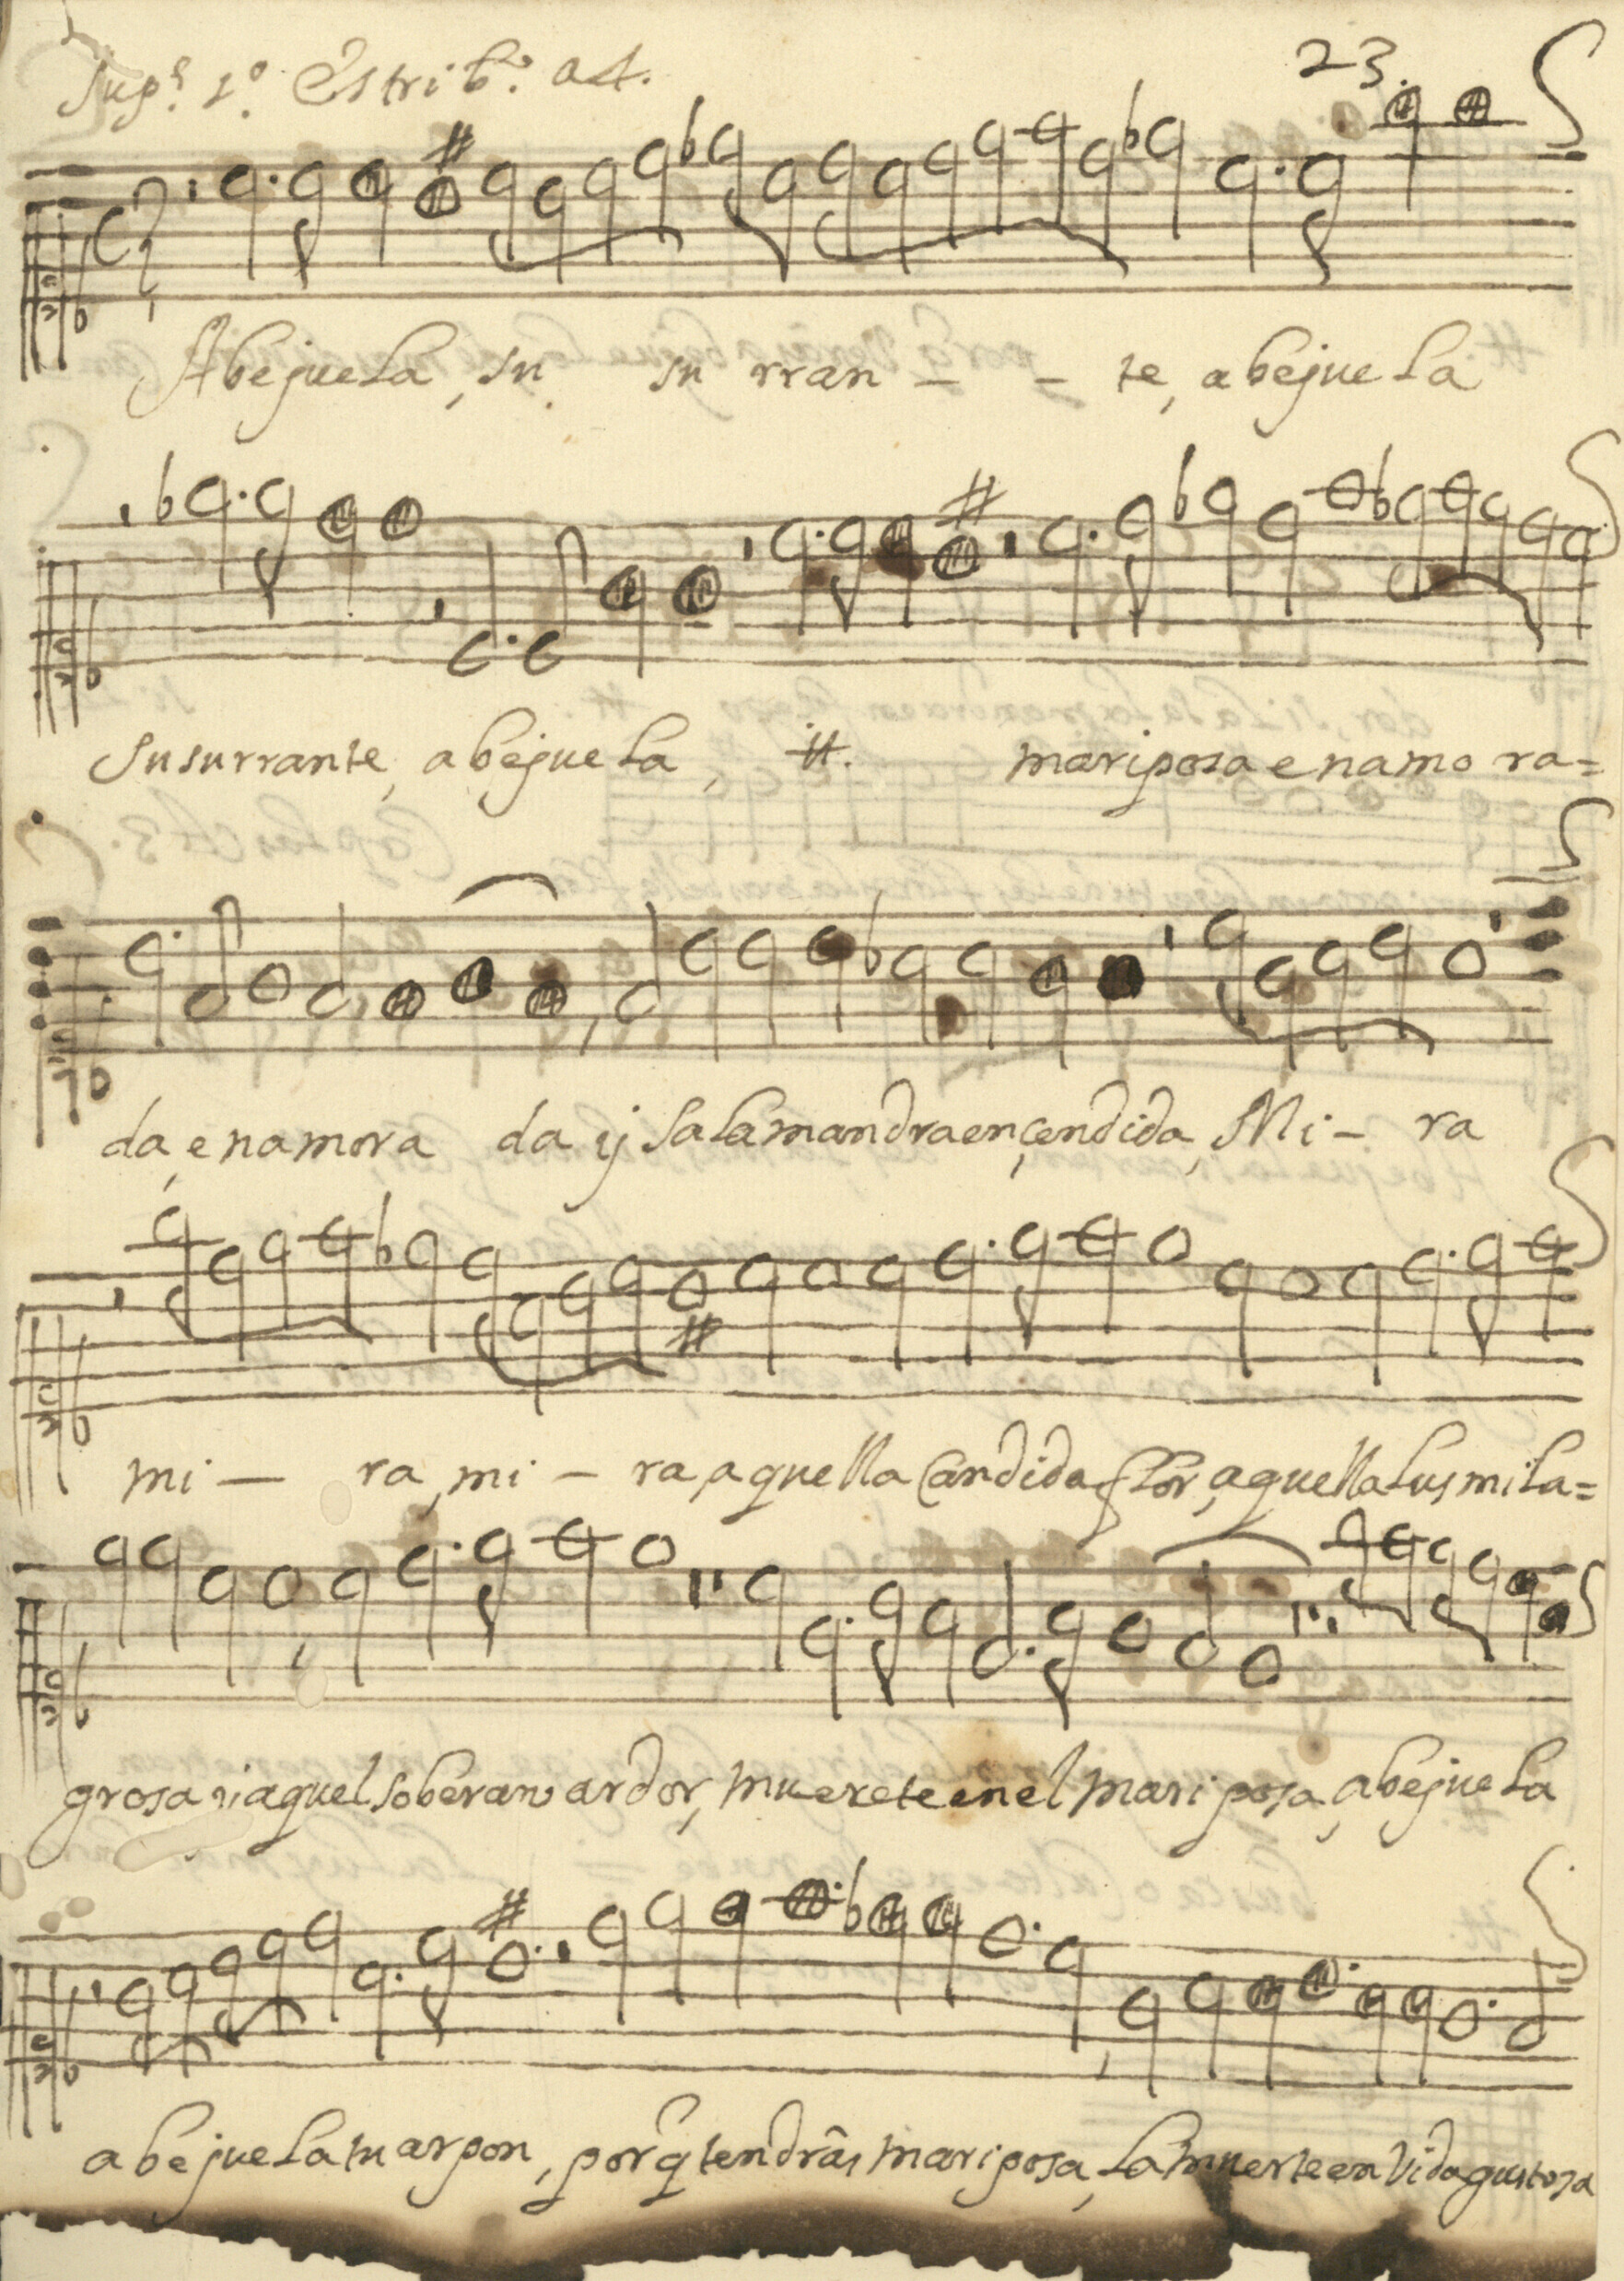 Sup.º 1.º Estrib.º a4. 23.
Abejuela, su su rran - - te, abejuela
susurrante, abejuela, ii. mariposa enamo ra=
da, enamora da ij salamandra ençendida, Mi - ra
mi - ra, mi - ra, aquella Candida flor, aquella lus mila=
grosa i aquel soberano ardor, muerete en el mariposa, abejuela
abejuela tu arpon, porq tendrâs mariposa, la muerte en vida gustosa